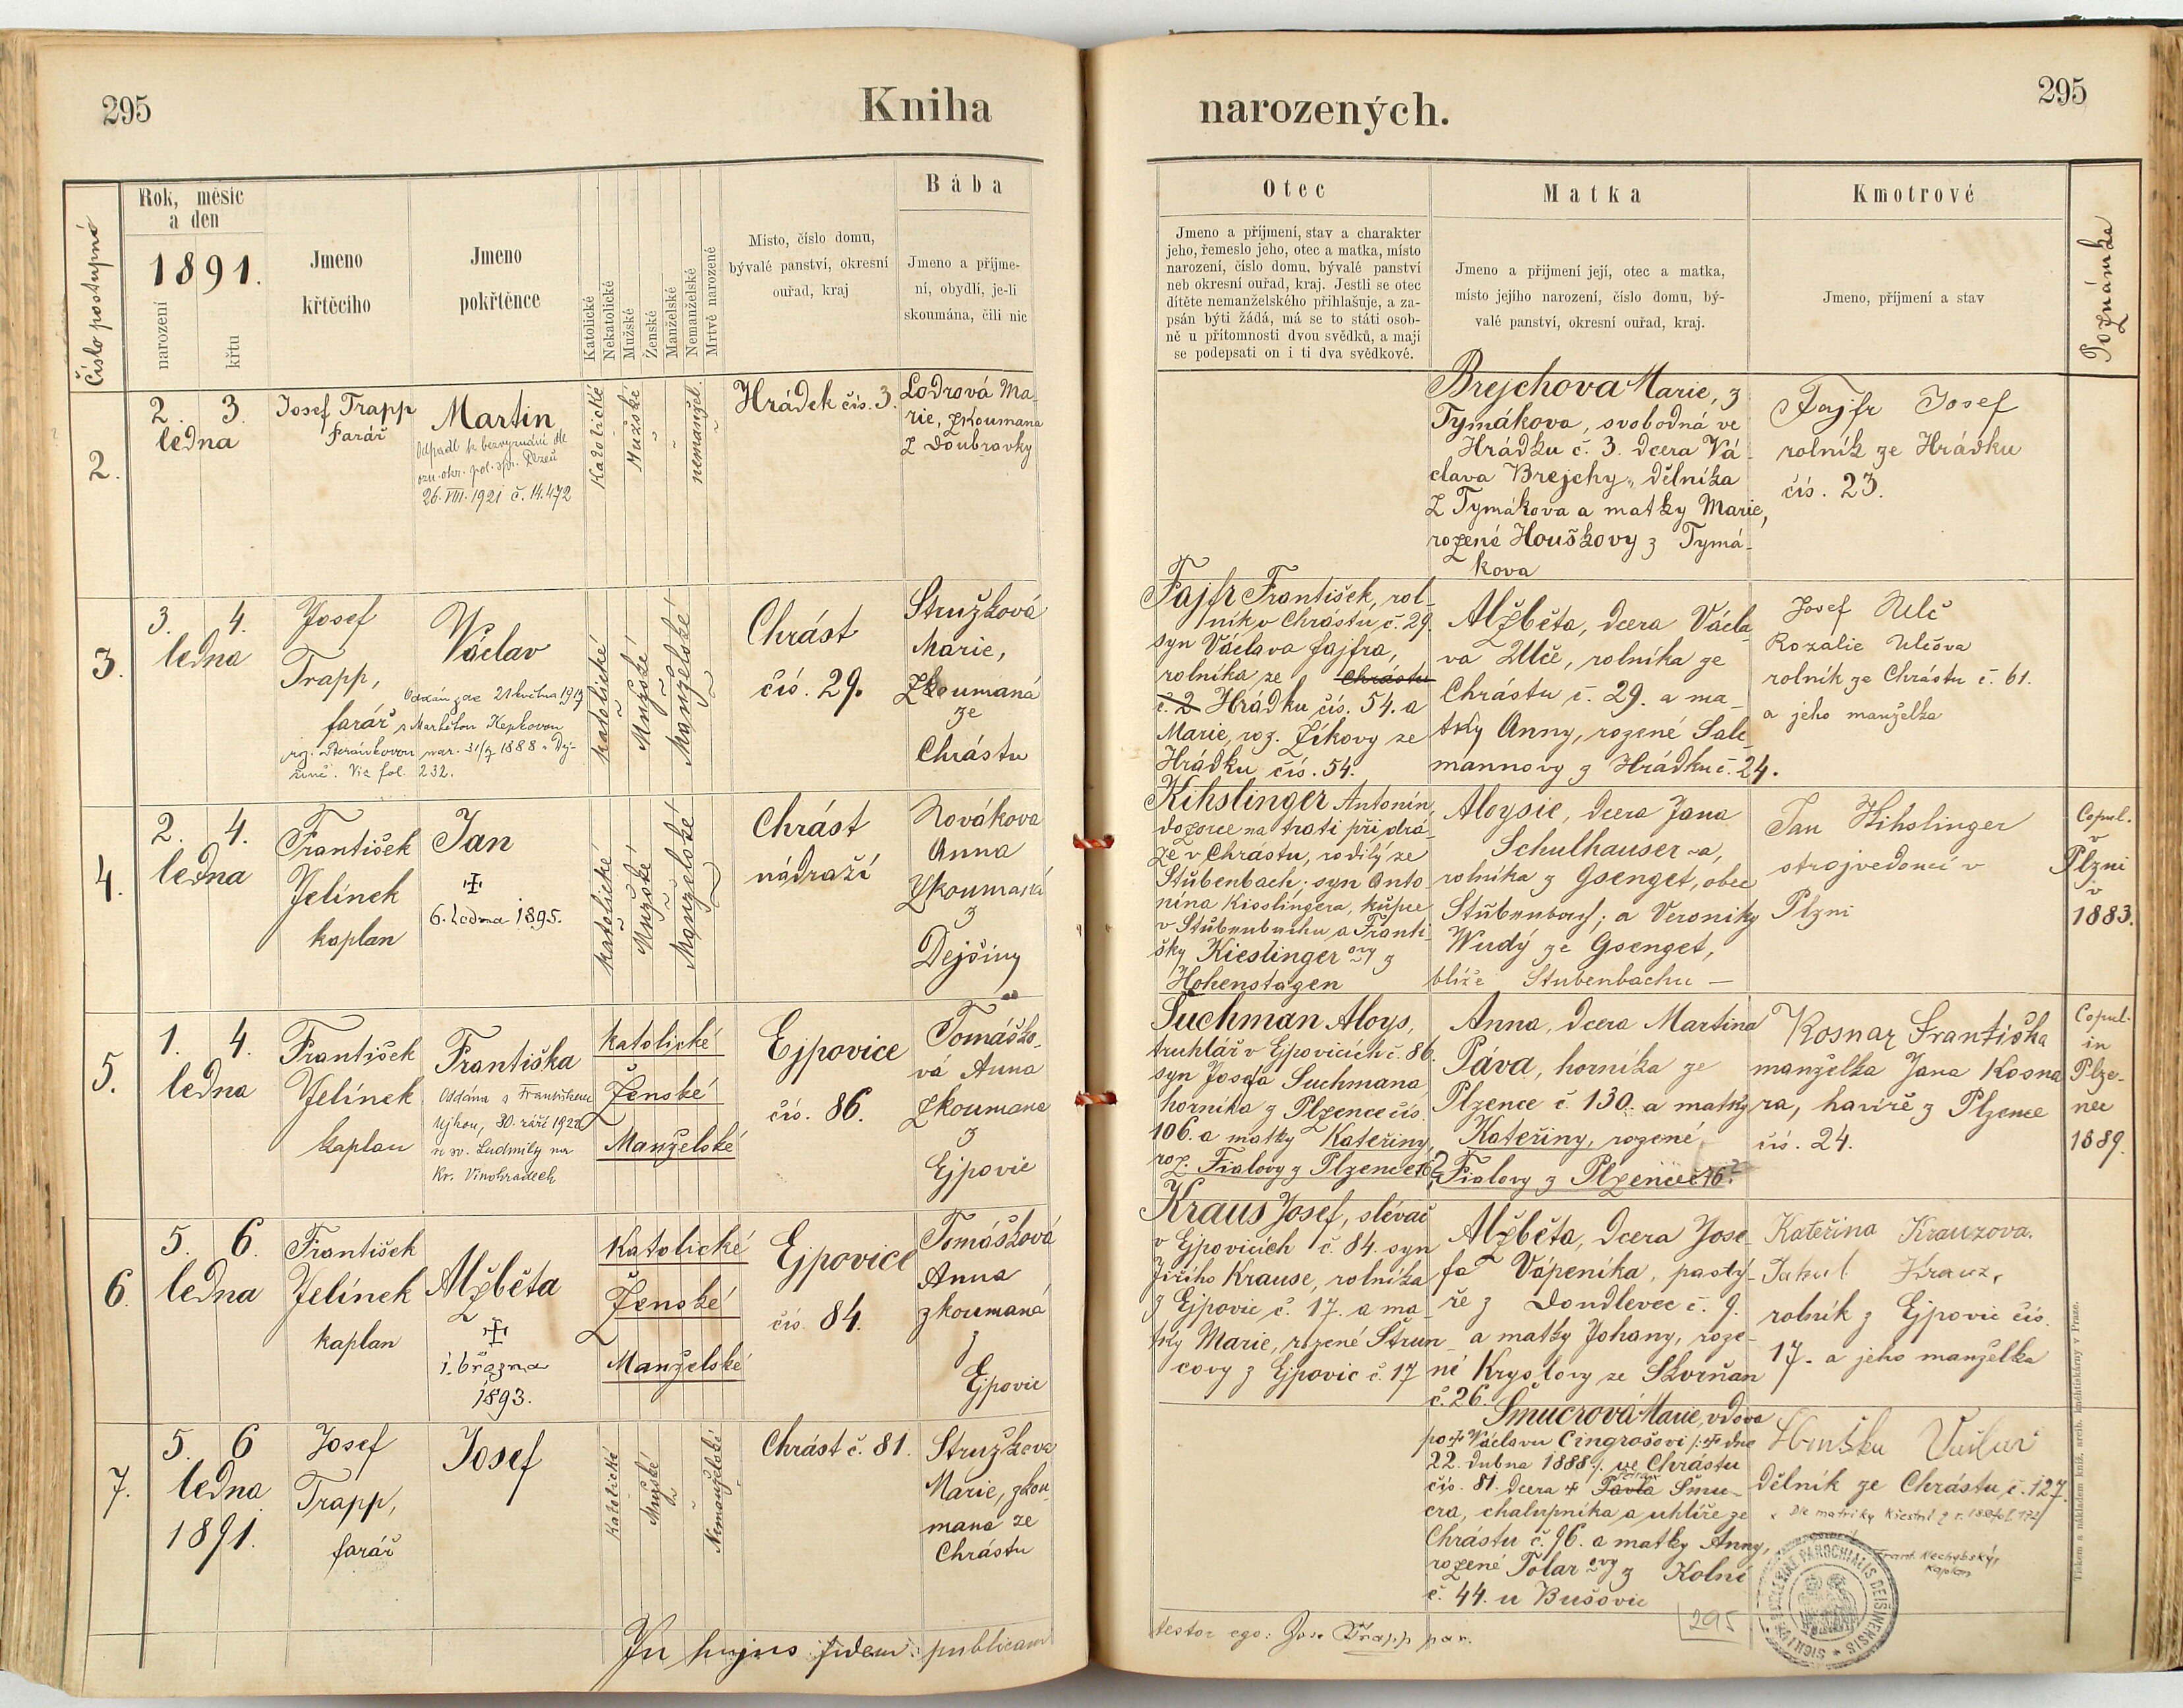 295
Kniha
narozených.
295
Číslo postupné
Rok, měsíc
a den
1891.
narození
křtu
Jmeno
křtěcího
Jmeno
pokřtěnce
Katolické
Nekatolické
Mužské
Ženské
Manželské
Nemanželské
Mrtvě narozené
Místo, číslo domu,
bývalé panství, okresní
ouřad, kraj
Bába
Jmeno a příjme-
ní, obydlí, je-li
skoumána, čili nic
Otec
Jmeno a příjmení, stav a charakter
jeho, řemeslo jeho, otec a matka, místo
narození, číslo domu, bývalé panství
neb okresní ouřad, kraj. Jestli se otec
dítěte nemanželského přihlašuje, a za-
psán býti žádá, má se to státi osob-
ně u přítomnosti dvou svědků, a mají
se podepsati on i ti dva svědkové.
Matka
Jmeno a přijmení její, otec a matka,
místo jejího narození, číslo domu, bý-
valé panství, okresní ouřad, kraj.
Kmotrové
Jmeno, příjmení a stav
Poznámka
2.
2. 3.
ledna
Josef Trapp
farář
Martin
Odpadl k bezvyznání dle
ozn. okr. pol. spr. Plzeň
26. VIII. 1921 č. 14.472
Katolické
Mužské
nemanžel.
Hrádek čís. 3.
Lodrová Ma-
rie, zkoumana
z Doubravky
Brejchova Marie, z
Tymákova, svobodná ve
Hrádku č. 3. dcera Vá-
clava Brejchy, dělníka
z Tymákova a matky Marie,
rozené Houškovy z Tymá-
kova
Fajfr Josef
rolník ze Hrádku
čís. 23.
3.
3. 4.
ledna
Josef
Trapp,
farář
Václav
Oddán zde 21 května 1919
s Markétou Kepkovou
roz. Beránkovou nar. 31/7 1888 v Dej-
šině. Viz fol. 232.
katolické
Mužské
Manželské
Chrást
čís. 29.
Stružková
Marie,
Zkoumaná
ze
Chrástu
Fajfr František, rol-
ník v Chrástu č. 29.
syn Václava Fajfra,
rolníka ze Chrástu
č. 2 Hrádku čís. 54. a
Marie, roz. Zíkovy ze
Hrádku čís. 54.
Alžběta, dcera Václa-
va Ulče, rolníka ze
Chrástu č. 29. a ma-
tky Anny, rozené Sale-
mannovy z Hrádku č. 24.
Josef Ulč
Rozalie Ulčova
rolník ze Chrástu č. 61.
a jeho manželka
4.
2. 4.
ledna
František
Jelínek
kaplan
Jan
6. ledna 1895.
katolické
Mužské
Manželské
Chrást
nádraží
Novákova
Anna
Zkoumaná
z
Dejšiny
Kihslinger Antonín,
dozorce na trati při drá-
ze v Chrástu, rodilý ze
Stubenbach; syn Anto-
nína Kisslingera, kupce
v Stubenbachu a Franti-
šky Kieslinger ovy z
Hohenstagen
Aloysie, dcera Jana
Schulhauser-a,
rolníka z Gsenget, obec
Stubenbach; a Veroniky
Wudý ze Gsenget,
blíže Stubenbachu
Jan Kihslinger
strojvedoucí v
Plzni
Copul.
v
Plzni
v
1883.
5.
1. 4.
ledna
František
Jelínek
kaplan
Františka
Oddána s Františkem
Ujkou, 30. září 1922
u sv. Ludmily na
Kr. Vinohradech
katolické
Ženské
Manželské
Ejpovice
čís. 86.
Tomáško-
vá Anna
zkoumana
z
Ejpovic
Suchman Aloys,
truhlář v Ejpovicích č. 86.
syn Josefa Suchmana
horníka z Plzence čís.
106. a matky Kateřiny,
roz. Fialovy z Plzence
Anna, dcera Martina
Páva, horníka ze
Plzence č. 130. a matky
Kateřiny, rozené
Fialovy z Plzence
Kosnar Františka
manželka Jana Kosna-
ra, havíře z Plzence
čís. 24.
Copul.
in
Plze-
nec
1889.
6.
5. 6.
ledna
František
Jelínek
kaplan
Alžběta
1. března
1893.
katolické
Ženské
Manželské
Ejpovice
čís. 84.
Tomášková
Anna
zkoumaná
z
Ejpovic
Kraus Josef, slévač
v Ejpovicích č. 84. syn
Jiřího Krause, rolníka
z Ejpovic č. 17. a ma-
tky Marie, rozené Štrun-
covy z Ejpovic č. 17
Alžběta, dcera Jose-
fa Vápeníka, pastý-
ře z Dondlevec č. 9.
a matky Johany, roze-
né Kryslovy ze Skvrňan
č. 26.
Kateřina Krauzova.
Jakub Krauz,
rolník z Ejpovic čís.
17. a jeho manželka
7.
5. 6
ledna
1891.
Josef
Trapp,
farář
Josef
Katolické
Mužské
Nemanželské
Chrást č. 81.
Stružkova
Marie, zkou-
mana ze
Chrástu
Šmucrová Marie, vdova
po Václavu Cingrošovi dne
22. dubna 1888 ve Chrástu
čís. 81. dcera Pavla Šmu-
cra, chalupníka a uhlíře ze
Chrástu č. 96. a matky Anny,
rozené Tolar ovy z Kolné
č. 44. u Bušovic
Houška Václav
dělník ze Chrástu, č. 127.
Frant. Nechybský,
kaplan
In hujus fidem publicam
testor ego: Jos. Trapp par.
295
Tiskem a nákladem kníž. arcib. kněhtiskárny v Praze.